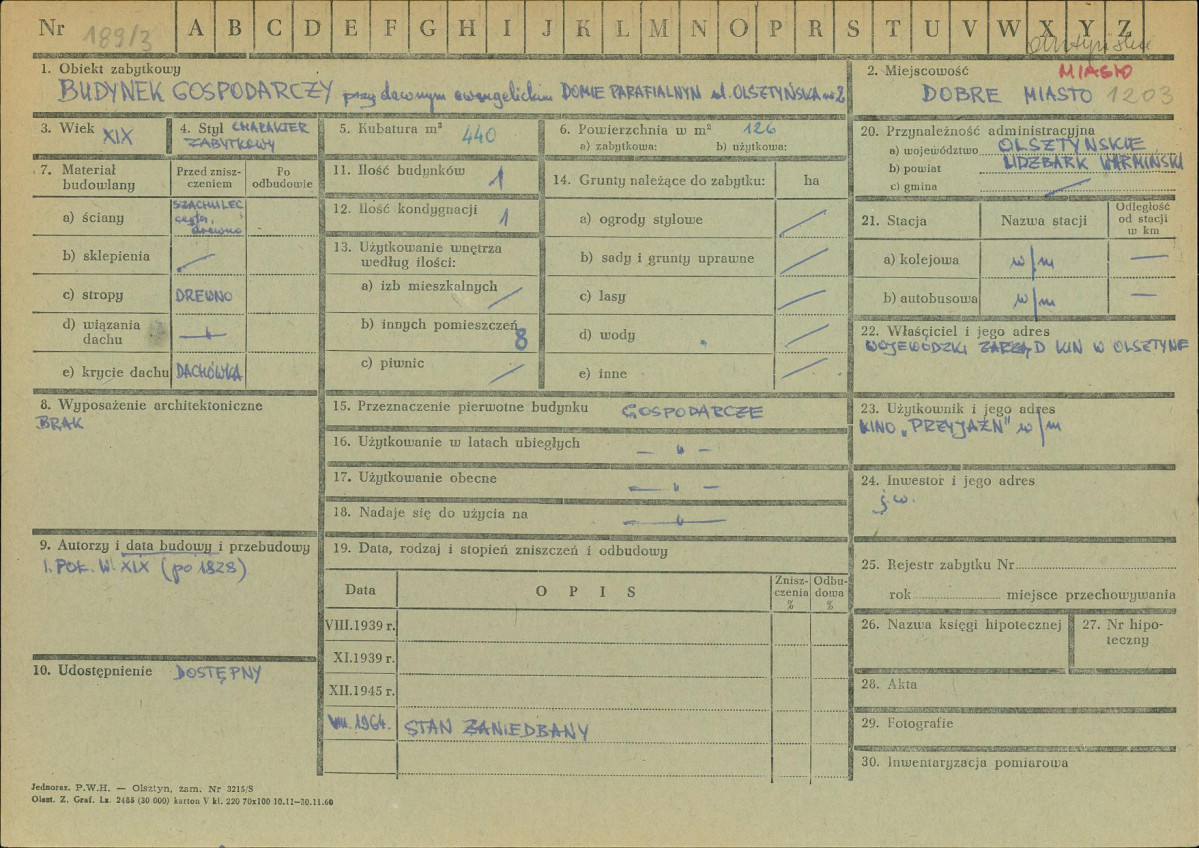 Nr 189/3 A B C D E F G H I J K L M N O P R S T U V W X Y Z
olsztyńskie
1. Obiekt zabytkowy
BUDYNEK GOSPODARCZY przy dawnym ewangelickim DOMIE PARAFIALNYM ul. OLSZTYŃSKA nr 2
2. Miejscowość MIASTO
DOBRE MIASTO 1203
3. Wiek XIX
4. Styl CHARAKTER
ZABYTKOWY
5. Kubatura m³ 440
6. Powierzchnia w m² 126
a) zabytkowa: b) użytkowa:
7. Materiał
budowlany
Przed znisz-
czeniem
Po
odbudowie
a) ściany SZACHULEC
cegła,
drewno
b) sklepienia /
c) stropy DREWNO
d) wiązania
dachu —"—
e) krycie dachu DACHÓWKA
8. Wyposażenie architektoniczne
BRAK
9. Autorzy i data budowy i przebudowy
1. POŁ. W. XIX (po 1828)
10. Udostępnienie DOSTĘPNY
11. Ilość budynków 1
12. Ilość kondygnacji 1
13. Użytkowanie wnętrza
według ilości:
a) izb mieszkalnych /
b) innych pomieszczeń 8
c) piwnic /
14. Grunty należące do zabytku: ha
a) ogrody stylowe /
b) sady i grunty uprawne /
c) lasy /
d) wody /
e) inne /
15. Przeznaczenie pierwotne budynku GOSPODARCZE
16. Użytkowanie w latach ubiegłych —"—
17. Użytkowanie obecne —"—
18. Nadaje się do użycia na —"—
19. Data, rodzaj i stopień zniszczeń i odbudowy
Data
OPIS
Znisz-
czenia
%
Odbu-
dowa
%
VIII.1939 r.
XI.1939 r.
XII.1945 r.
VIII.1964. STAN ZANIEDBANY
20. Przynależność administracyjna
a) województwo OLSZTYŃSKIE
b) powiat LIDZBARK WARMIŃSKI
c) gmina /
21. Stacja
Nazwa stacji
Odległość
od stacji
w km
a) kolejowa w/m —
b) autobusowa w/m —
22. Właściciel i jego adres
WOJEWÓDZKI ZARZĄD KIN W OLSZTYNE
23. Użytkownik i jego adres
KINO „PRZYJAŹŃ" w/m
24. Inwestor i jego adres
j.w.
25. Rejestr zabytku Nr
rok miejsce przechowywania
26. Nazwa księgi hipotecznej
27. Nr hipo-
teczny
28. Akta
29. Fotografie
30. Inwentaryzacja pomiarowa
Jednoraz. P.W.H. — Olsztyn, zam. Nr 3215/S
Olszt. Z. Graf. Lz. 2455 (30 000) karton V kl. 220 70x100 10.11—30.11.60